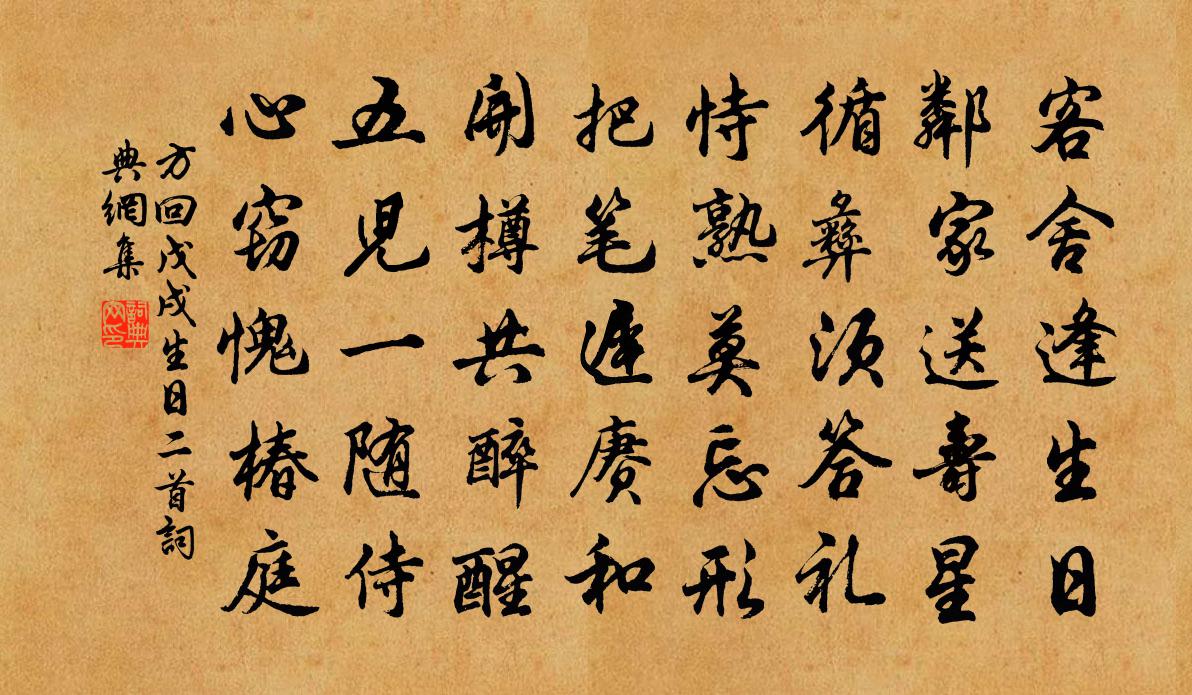 客舍逢生日
鄰家送壽星
循彝須答礼
恃熟莫忘形
把笔遲赓和
開樽共醉醒
五児一随侍
心窃愧椿庭
方回戊戌生日二首詞
典網集
詞典
网印